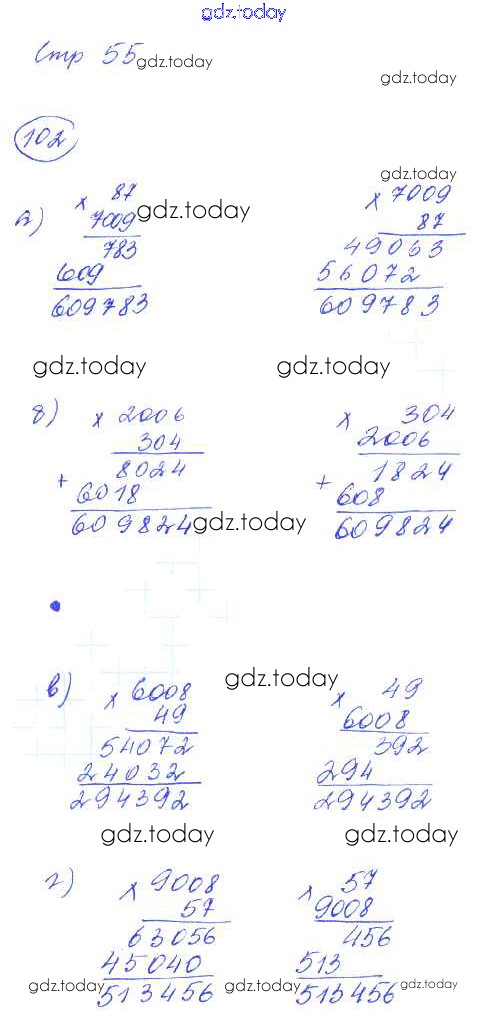 gdz.today
Стр 55 gdz.today
gdz.today
102
gdz.today
а) × 87
7009 gdz.today
783
609
609783
× 7009
87
49063
56072
609783
gdz.today gdz.today
б) × 2006
304
8024
+ 6018
609824 gdz.today
× 304
2006
1824
+ 608
609824
в) × 6008
49
54072
24032
294392
gdz.today
× 49
6008
392
294
294392
gdz.today gdz.today
г) × 9008
57
63056
45040
513456
× 57
9008
456
513
513456
gdz.today gdz.today gdz.today